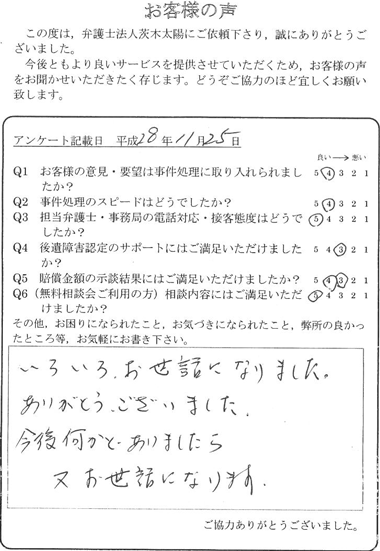 お客様の声
この度は，弁護士法人茨木太陽にご依頼下さり，誠にありがとうご
ざいました。
今後ともより良いサービスを提供させていただくため，お客様の声
をお聞かせいただきたく存じます。どうぞご協力のほど宜しくお願い
致します。
アンケート記載日 平成28年11月25日
良い→悪い
Q1 お客様の意見・要望は事件処理に取り入れられまし
たか？ 5 4 3 2 1
Q2 事件処理のスピードはどうでしたか？ 5 4 3 2 1
Q3 担当弁護士・事務局の電話対応・接客態度はどうで
したか？ 5 4 3 2 1
Q4 後遺障害認定のサポートにはご満足いただけました
か？ 5 4 3 2 1
Q5 賠償金額の示談結果にはご満足いただけましたか？ 5 4 3 2 1
Q6（無料相談会ご利用の方）相談内容にはご満足いただ
けましたか？ 5 4 3 2 1
その他，お困りになられたこと，お気づきになられたこと，弊所の良かっ
たところ等，お気軽にお書き下さい。
いろいろ、お世話になりました。
ありがとうございました．
今後何かと、ありましたら
又お世話になります．
ご協力ありがとうございました。